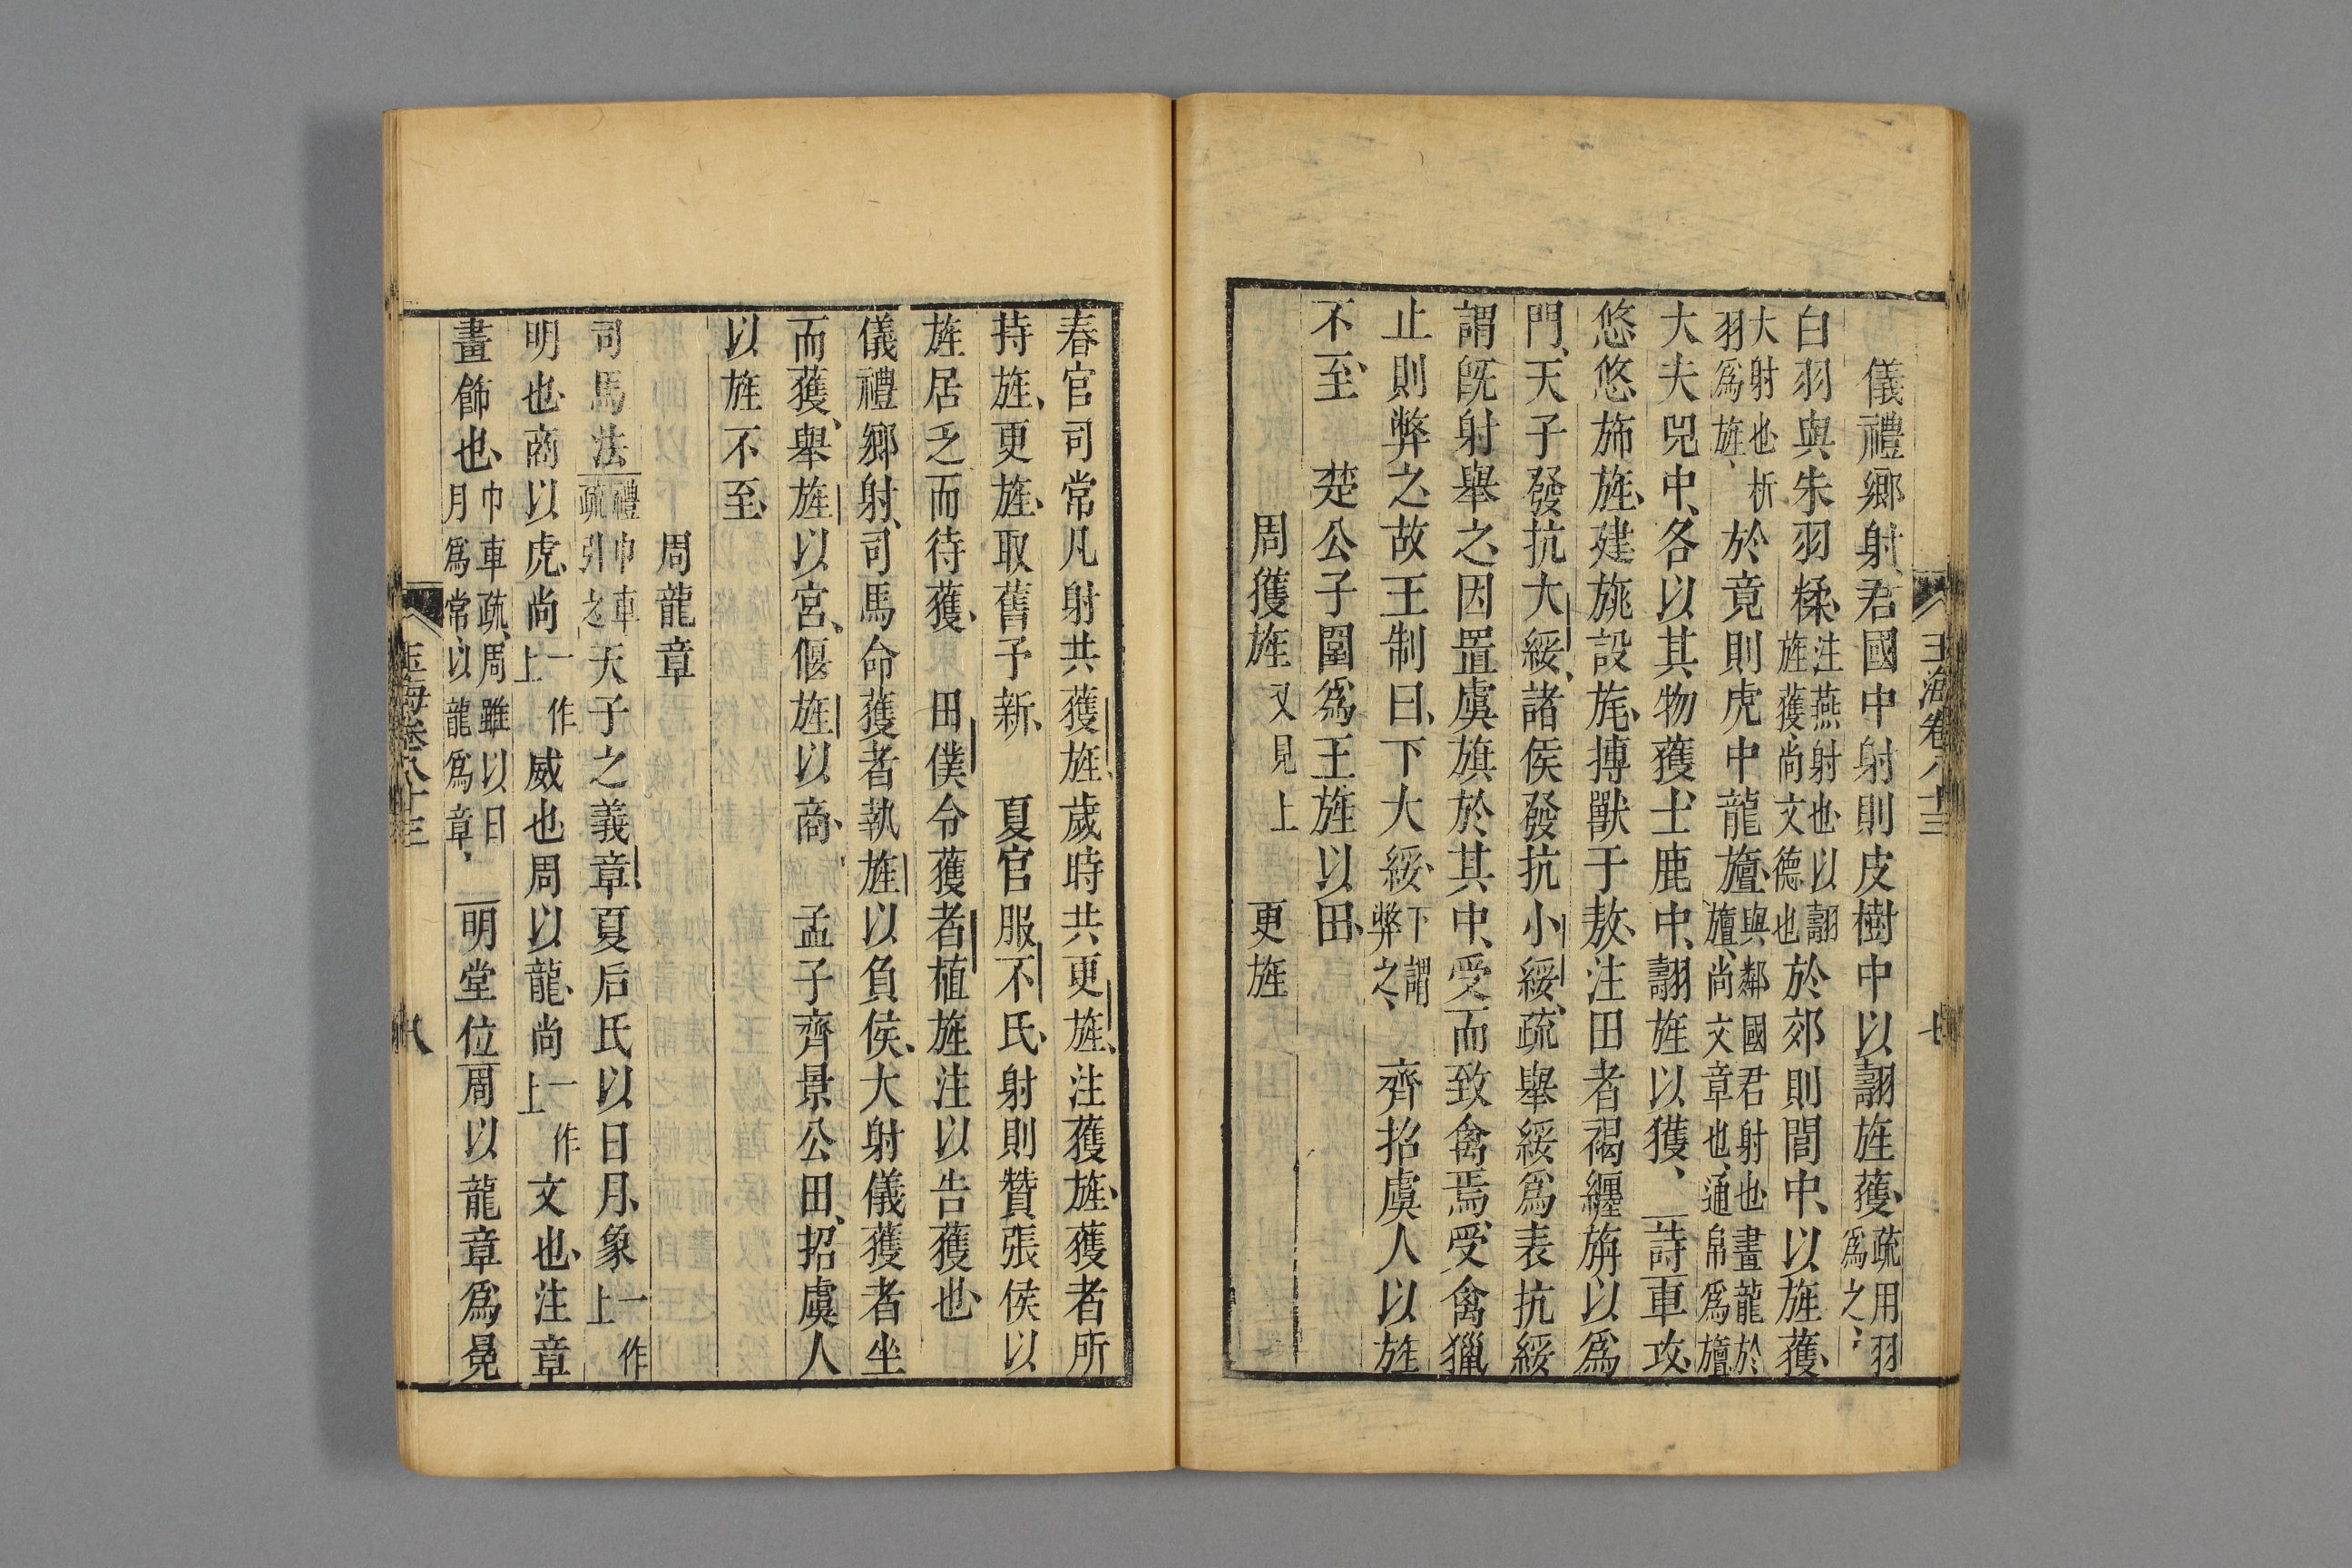 玉海卷八十三
七
儀禮鄉射、君國中射則皮樹中以翿旌獲、疏用羽爲之、
白羽與朱羽糅、注燕射也以翿旌獲、尚文德也於郊則閭中、以旌獲、
大射也析羽爲旌、於竟則虎中龍旜、與鄰國君射也畫龍於旜、尚文章也、通帛爲旜
大夫兕中、各以其物獲、士鹿中、翿旌以獲、詩車攻、
悠悠旆旌、建旐設旄、搏獸于敖、注田者褐纏旃以爲
門、天子發抗大綏、諸侯發抗小綏、疏舉綏爲表抗綏
謂旣射舉之、因置虞旗於其中、受而致禽焉、受禽獵
止則弊之、故王制曰、下大綏、下謂弊之、 齊招虞人以旌
不至、 楚公子圍爲王旌以田、
周獲旌又見上 更旌
春官司常凡射共獲旌、歲時共更旌、注獲旌、獲者所
持旌、更旌、取舊予新、 夏官服不氏、射則贊張侯以
旌居乏而待獲、 田僕令獲者植旌注以告獲也、
儀禮鄉射、司馬命獲者執旌以負侯、大射儀獲者坐
而獲、舉旌以宮、偃旌以商、 孟子齊景公田、招虞人
以旌不至、
周龍章
司馬法禮巾車疏引之天子之義章夏后氏以日月、象一作上
明也、商以虎、尚一作上威也周以龍、尚一作上文也、注章
畫飾也、巾車疏、周雖以日月爲常、以龍爲章、明堂位周以龍章爲冕
玉海卷八十三
八